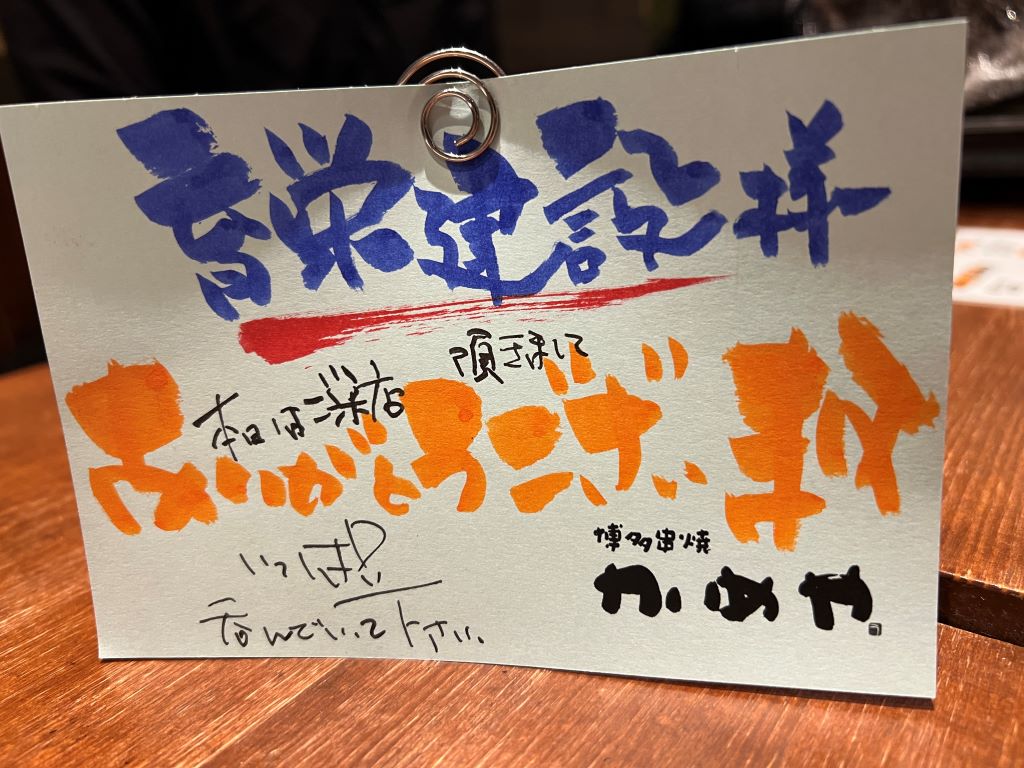 育栄建設様
本日はご来店
頂きまして
ありがとうございます
いっぱい
呑んでいって下さい。
博多串焼
かめや